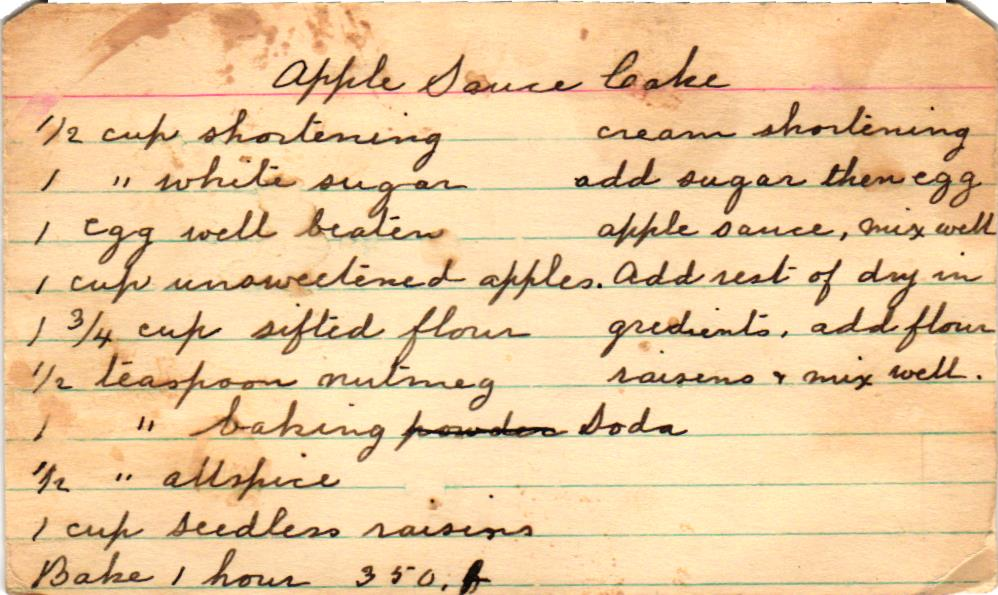 Apple Sauce Cake
1/2 cup shortening
1 " white sugar
1 egg well beaten
1 cup unsweetened apples.
1 3/4 cup sifted flour
1/2 teaspoon nutmeg
1 " baking powder Soda
1/2 " allspice
1 cup seedless raisins
Bake 1 hour 350.
cream shortening
add sugar then egg
apple sauce, mix well
Add rest of dry in
gredients, add flour
raisens & mix well.